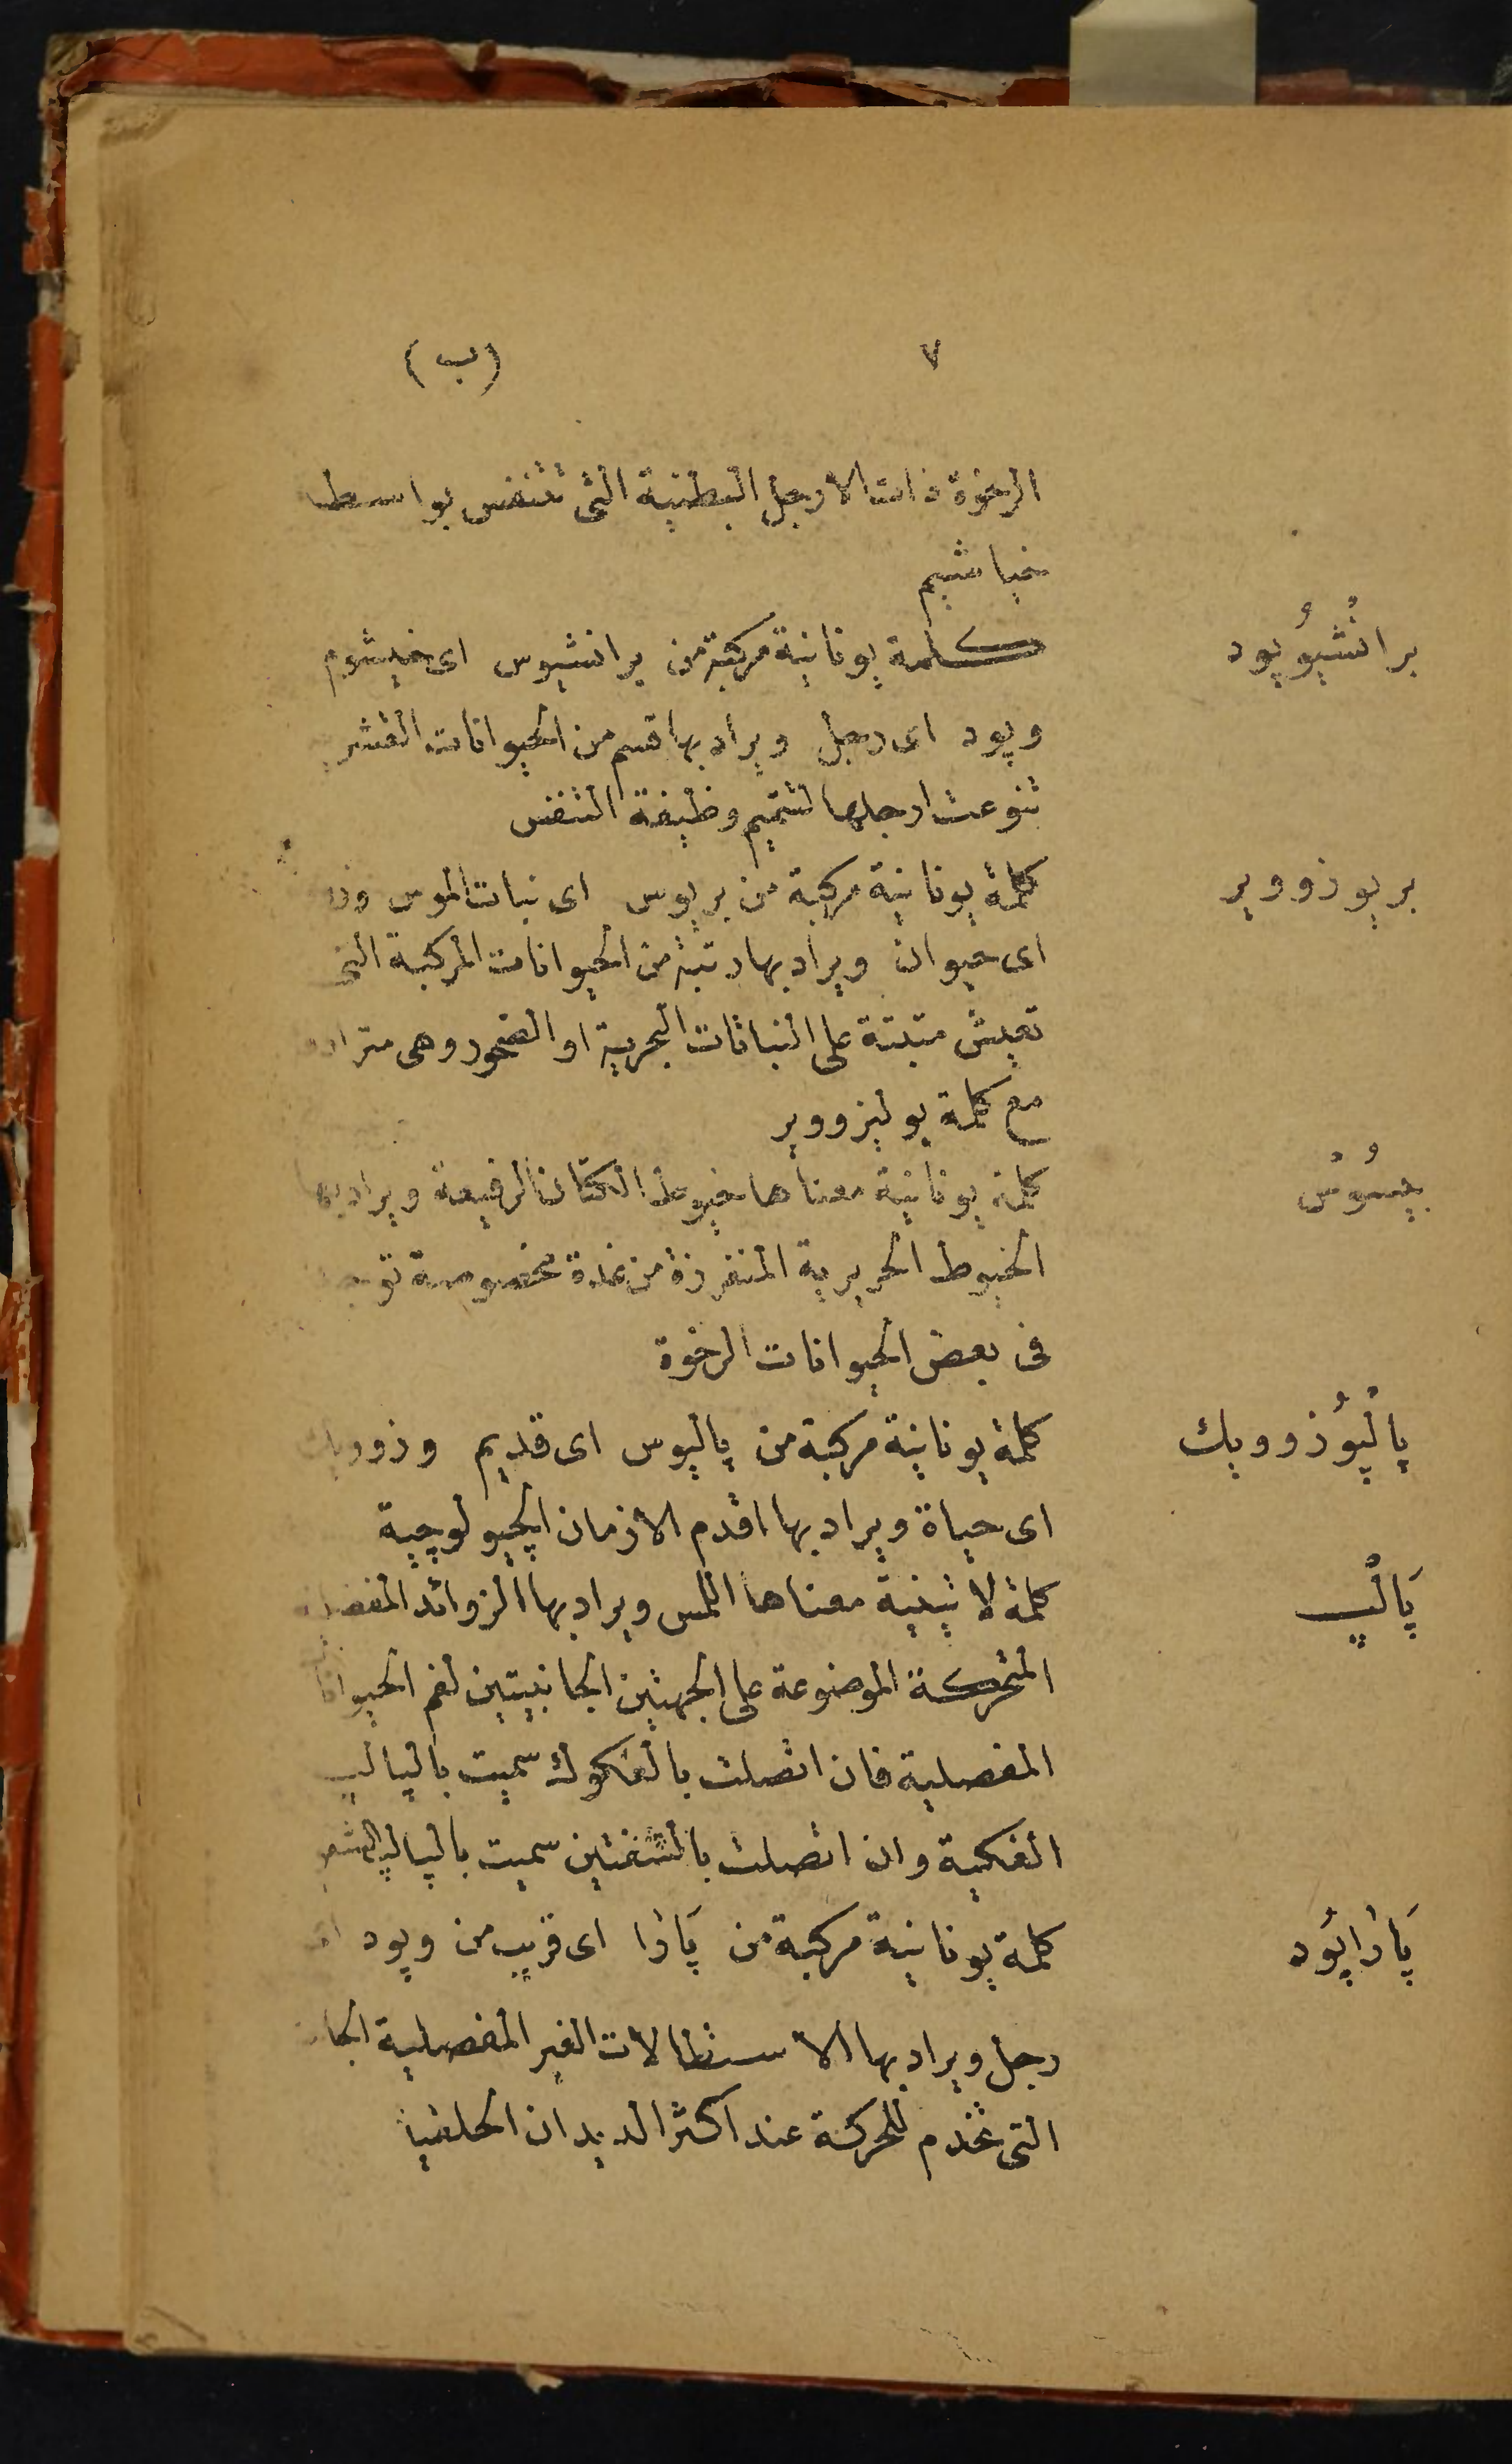 ٧ (ب)
الرخوة ذات الارجل البطنية التى تتنفس بواسطة
خياشيم
برانْشيُوپود كلمة يونانية مركبة من برانشيوس اى خيشوم
وپود اى رجل ويراد بها قسم من الحيوانات القشرية
تنوعت ارجلها لتتميم وظيفة التنفس
بريوزووير كلمة يونانية مركبة من بريوس اى نبات الموس
اى حيوان ويراد بها رتبة من الحيوانات المركبة التى
تعيش مثبتة على النباتات البحرية او الصخور وهى مترادفة
مع كلمة بوليزووير
بيسُوسْ كلمة يونانية معناها خيوط الكتان الرفيعة ويراد بها
الخيوط الحريرية المنفرزة من غدة مخصوصة توجد
فى بعض الحيوانات الرخوة
پالْيُوزوويك كلمة يونانية مركبة من پاليوس اى قديم وزوويك
اى حياة ويراد بها اقدم الازمان الچيولوچية
پَالْپ كلمة لاتينية معناها اللمس ويراد بها الزوائد المفصلية
المتحركة الموضوعة على الجهتين الجانبيتين لفم الحيوانات
المفصلية فان اتصلت بالفكوك سميت بالپالپ
الفكية وان اتصلت بالشفتين سميت بالپالپ
پَارَاپُود كلمة يونانية مركبة من پَارَا اى قريب من وپود اى
رجل ويراد بها الاستطالات الغير المفصلية
التى تخدم للحركة عند اكثر الديدان الحلقية